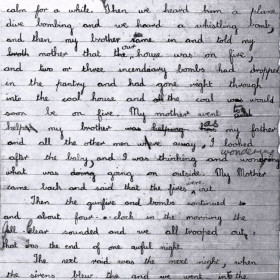 calm for a while. Then we heard him a plane
dive bombing and we heard a whistling bomb,
and then my brother came in and told my
mother that our house was on fire,
and two or three incendiary bombs had dropped
in the pantry and had gone right through
into the coal house and all the coal would
soon be on fire. My mother went
my brother was helping as my father
and all the other men where away, I looked
after the baby, and I was thinking and wondering
what was going on outside. My Mother
came back and said that the fires were out.
Then the gunfire and bombs continued
and about four o-clock in the morning the
all clear sounded and we all trooped out,
that was the end of one awful night.
The next raid was the next night, when
the sirens blew the and we went into the